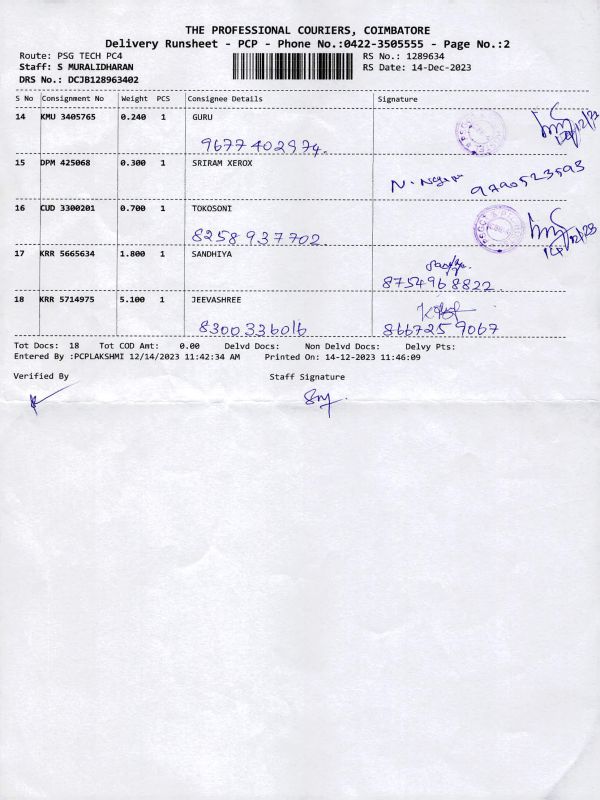 THE PROFESSIONAL COURIERS, COIMBATORE
Delivery Runsheet - PCP - Phone No.:0422-3505555 - Page No.:2
Route: PSG TECH PC4
RS No.: 1289634
Staff: S MURALIDHARAN
RS Date: 14-Dec-2023
DRS No.: DCJB128963402
S No Consignment No Weight PCS Consignee Details Signature
14 KMU 3405765 0.240 1 GURU
9677402974.
15 DPM 425068 0.300 1 SRIRAM XEROX
9290523593
16 CUD 3300201 0.700 1 TOKOSONI
8258937702
17 KRR 5665634 1.800 1 SANDHIYA
8754968822
18 KRR 5714975 5.100 1 JEEVASHREE
8300336016 8667259067
Tot Docs: 18 Tot COD Amt: 0.00 Delvd Docs: Non Delvd Docs: Delvy Pts:
Entered By :PCPLAKSHMI 12/14/2023 11:42:34 AM Printed On: 14-12-2023 11:46:09
Verified By Staff Signature